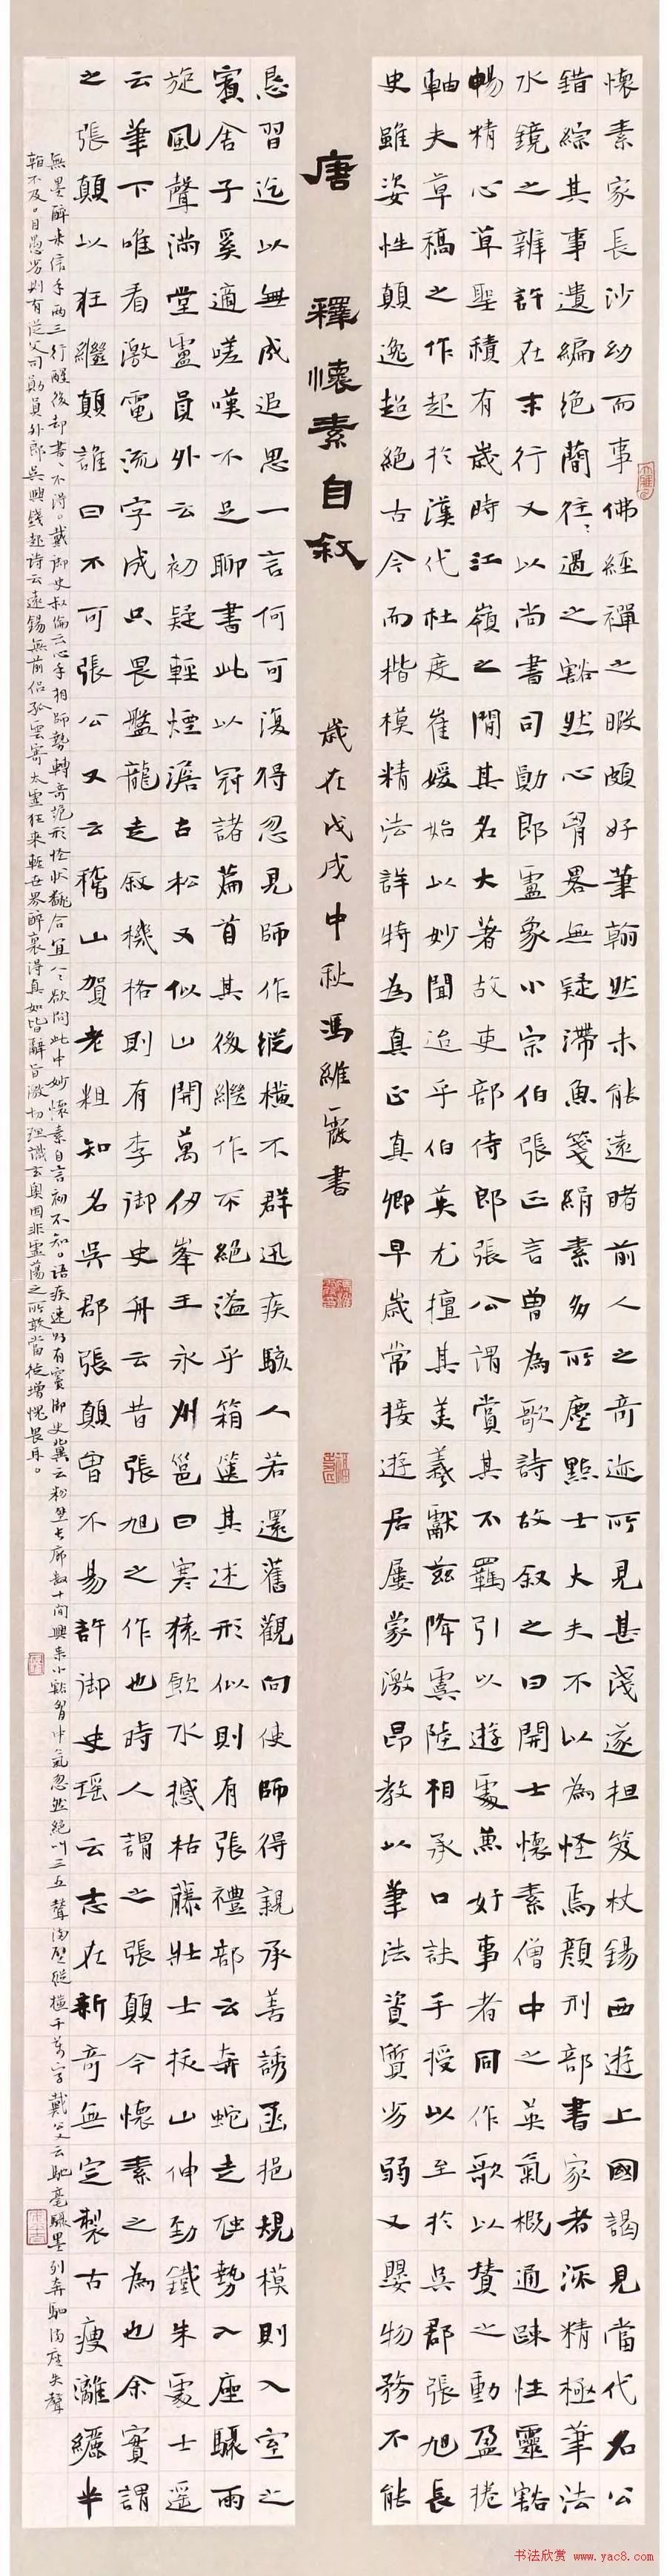 懷素家長沙幼而事佛經禪之暇頗好筆翰然未能遠睹前人之奇迹所見甚淺遂担笈杖錫西遊上國謁見當代名公
錯綜其事遺編絕簡往〻遇之豁然心胷畧無疑滯魚箋絹素多所塵點士大夫不以為怪焉顏刑部書家者流精極筆法
水鏡之辨許在末行又以尚書司勳郎盧象小宗伯張正言曾為歌詩故叙之曰開士懷素僧中之英氣概通疎性靈豁
暢精心草聖積有歲時江嶺之間其名大著故吏部侍郎張公謂賞其不羈引以遊處兼好事者同作歌以贊之動盈捲
軸夫草稿之作起於漢代杜度崔媛始以妙聞迨乎伯英尤擅其美羲獻茲降虞陸相承口訣手授以至於吳郡張旭長
史雖姿性顛逸超絕古今而楷模精法詳特為真正真卿早歲常接遊居屢蒙激昂教以筆法資質劣弱又嬰物務不能
唐 釋懷素自敘 歲在戊戌中秋馮維霞書
懇習迄以無成追思一言何可復得忽見師作縱橫不群迅疾駭人若還舊觀向使師得親承善誘函挹規模則入室之
賓舍子奚適嗟嘆不足聊書此以冠諸篇首其後繼作不絕溢乎箱篋其述形似則有張禮部云奔蛇走虺勢入座驟雨
旋風聲滿堂盧員外云初疑輕煙澹古松又似山開萬仞峯王永州邕曰寒猿飲水撼枯藤壯士拔山伸勁鐵朱處士遥
云筆下唯看激電流字成只畏盤龍走叙機格則有李御史舟云昔張旭之作也時人謂之張顛今懷素之為也余實謂
之張顛以狂繼顛誰曰不可張公又云稽山賀老粗知名吳郡張顛曾不易許御史瑶云志在新奇無定製古瘦灕纚半
無墨醉來信手兩三行醒後却書〻不得。戴御史叔倫云心手相師勢轉奇詭形怪狀翻合宜人〻欲問此中妙懷素自言初不知。語疾速則有竇御史冀云粉壁長廊數十間興來小豁胷中氣忽然絕叫三五聲滿壁縱橫千萬字戴公又云馳毫驟墨列奔駟滿座失聲
翰不及。目愚劣則有從父司勳員外郎吳興錢起詩云遠錫無前侶孤雲寄太虛狂來輕世界醉裏得真如皆辭旨激切理識玄奧固非虛蕩之所敢當徒增愧畏耳。
书法欣赏 www.yac8.com